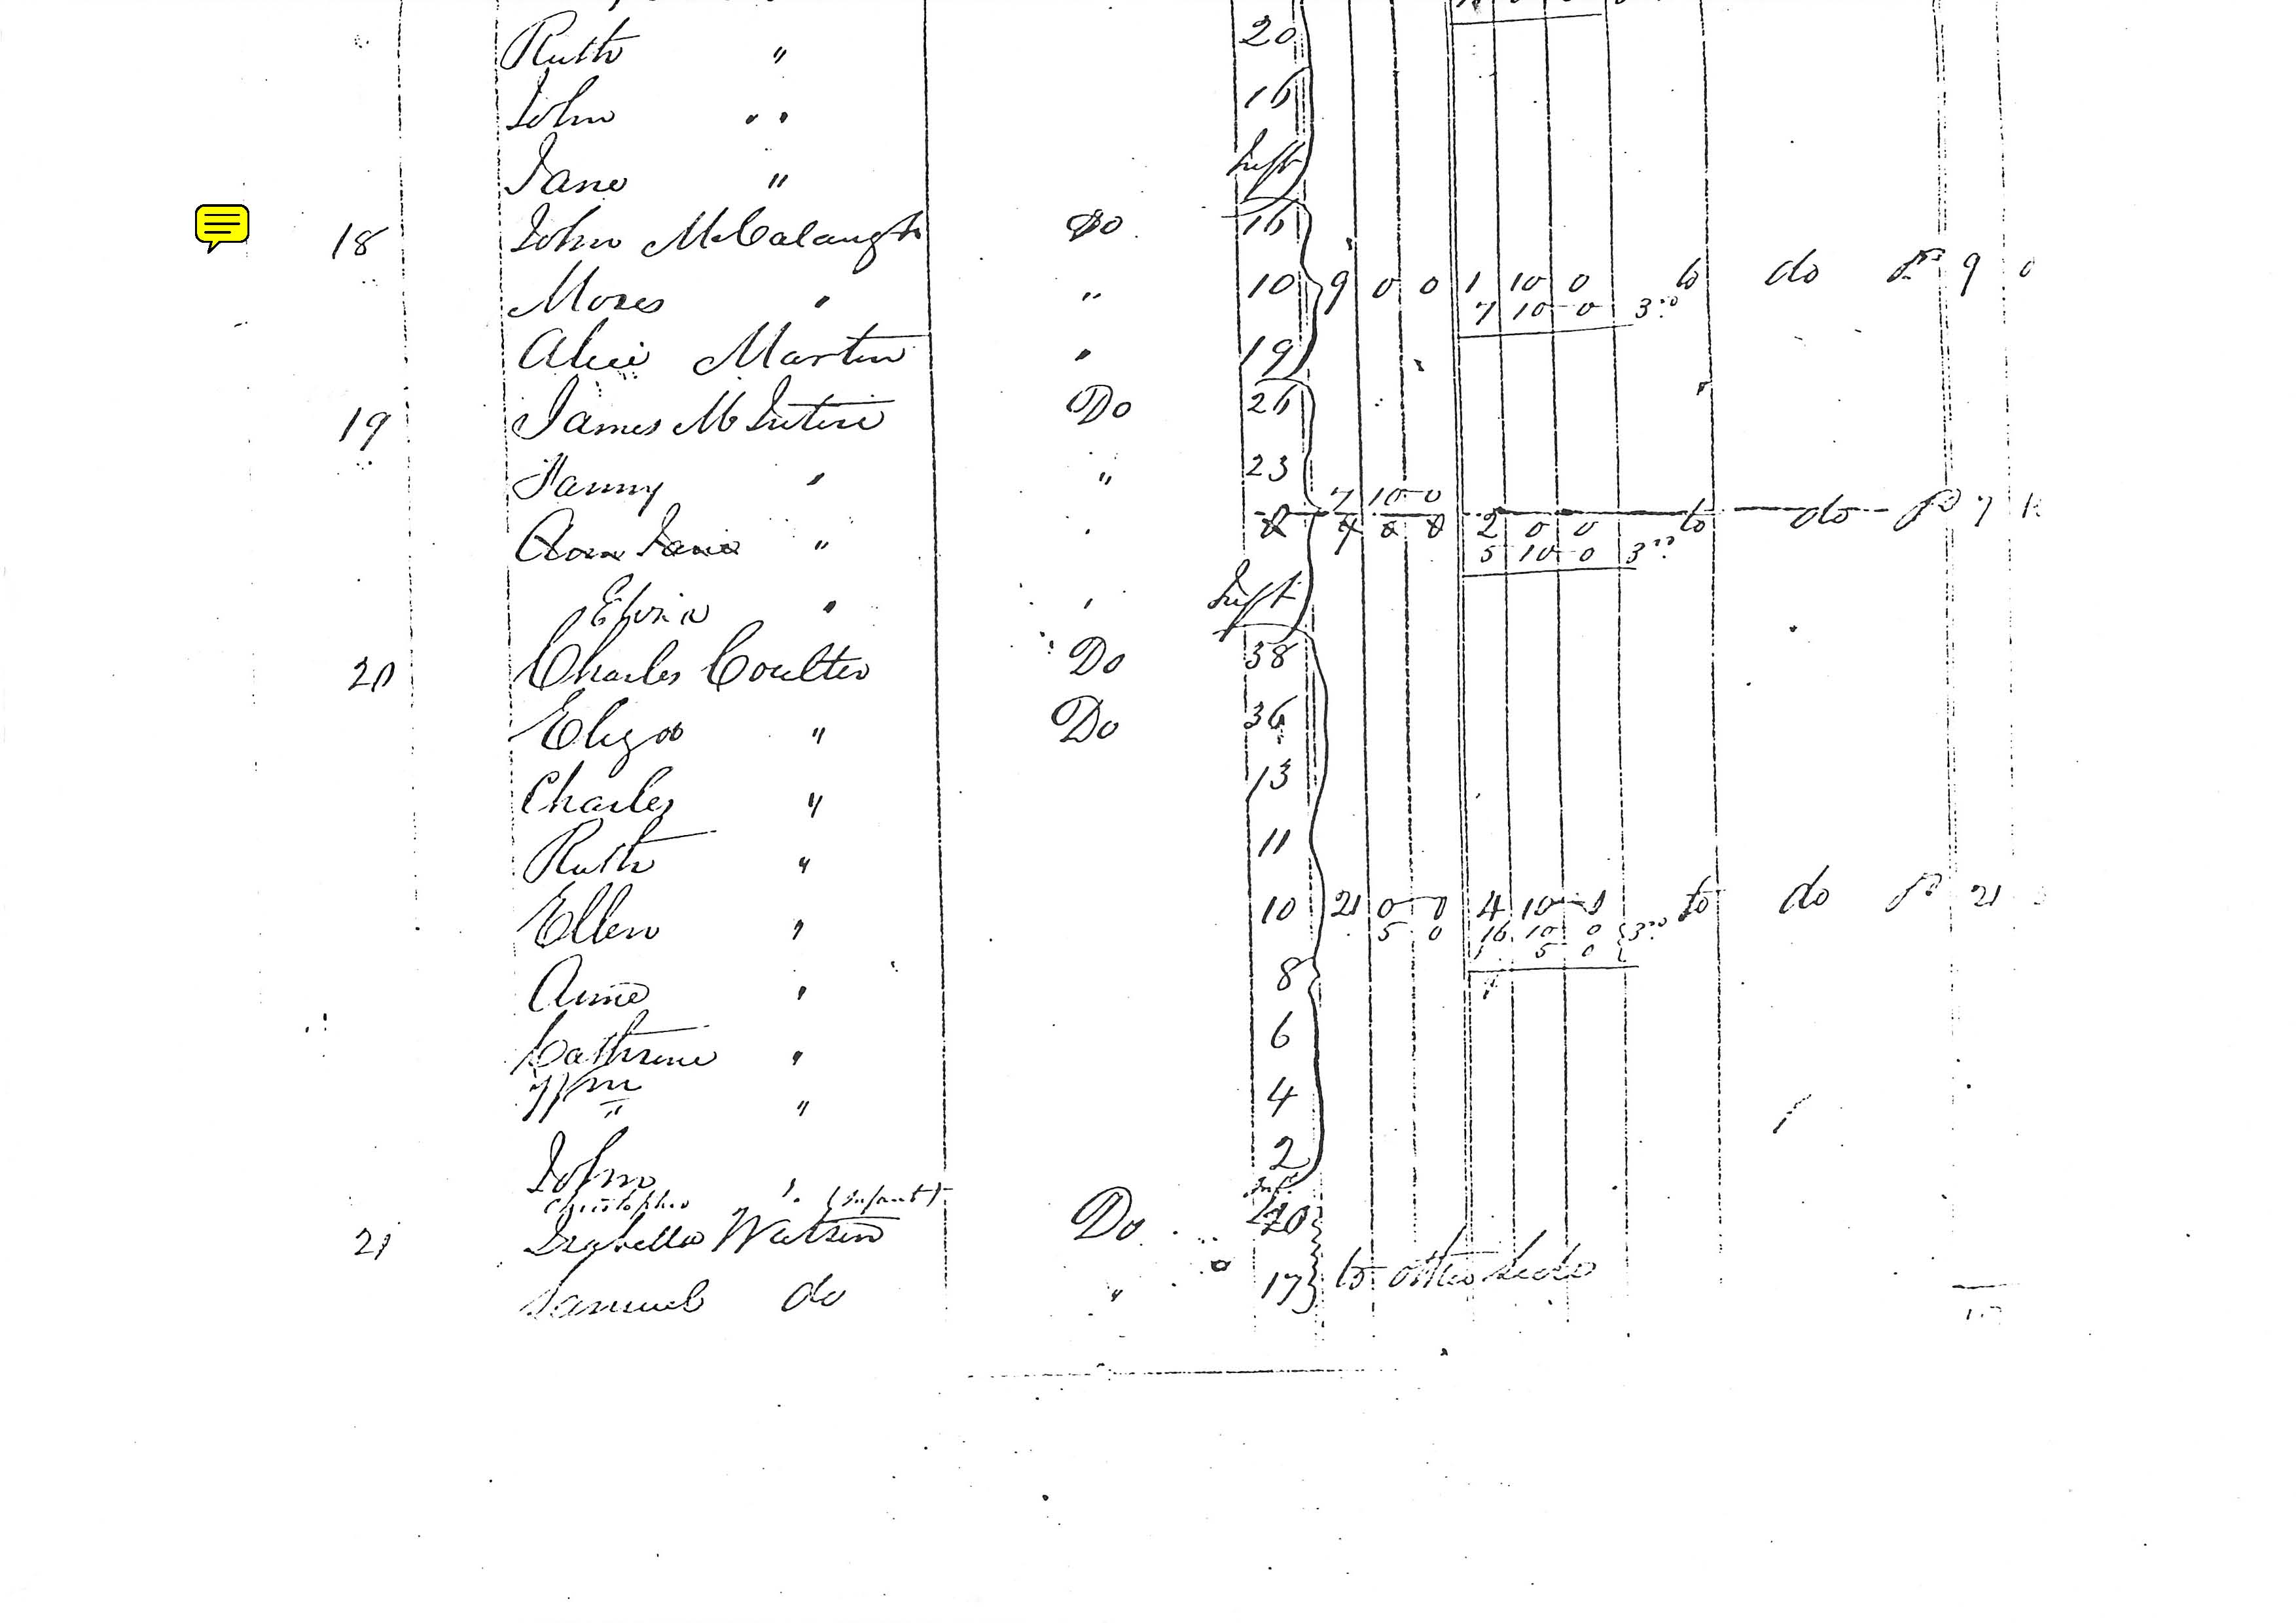 Ruth " 20
John " 16
Jane " Inft
18 John McCalaugh Do 16
Moses " " 10 9 0 0 1 10 0 to do pd 9 0
7 10 0 3
Alice Martin " 19
19 James McIntire Do 26
Fanny " " 23
7 10 0
Ann Jane " 2 0 0 to do pd 7 1
5 10 0 3
Inft
20 Charles Coulter Do 38
Eliza " Do 36
Charles " 13
Ruth " 11
Ellen " 10 21 0 0 4 10 0 to do pd 21
5 0 16 10 0 3
5 0
Anne " 8
Cathrine " 6
Wm " 4
John " 2
Christopher " (Infant) Inft
21 Isabella Watson Do 20
Samuel do " 17 to other side